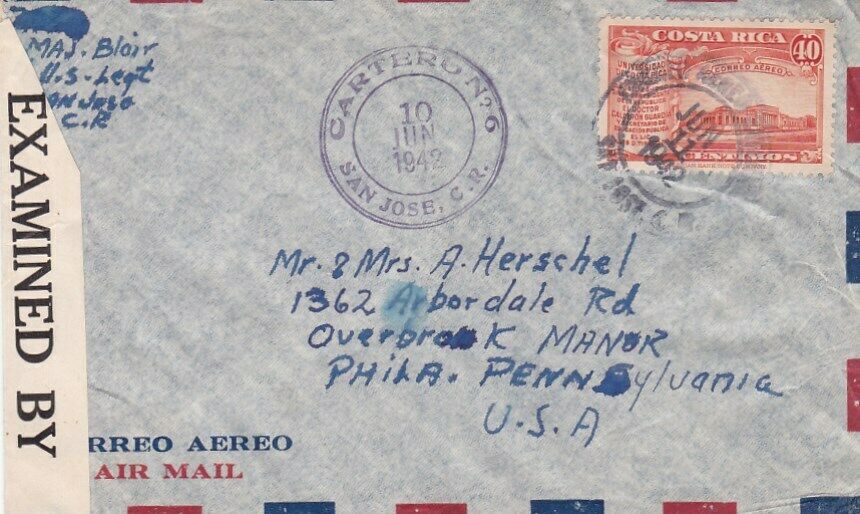 MAJ. Blair
U.S. Legt
San Jose
C.R
EXAMINED BY
CARTERO No. 6
10
JUN
1942
SAN JOSE, C. R.
COSTA RICA
40
CORREO AEREO
UNIVERSIDAD
EL DOCTOR
CALDERON GUARDIA
CENTIMOS
JUN
1942
Mr. & Mrs. A. Herschel
1362 Arbordale Rd
Overbrook MANOR
PHILA. PENNSylvania
U.S.A
RREO AEREO
AIR MAIL